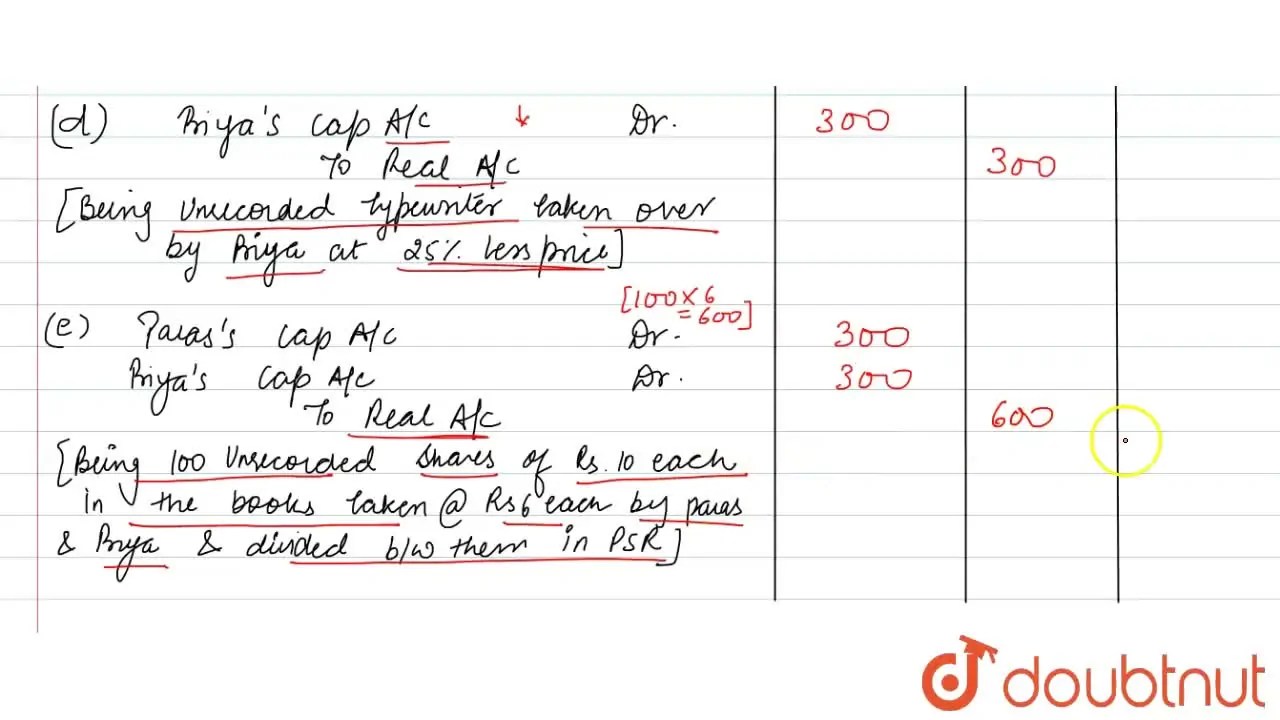 (d) Priya's cap A/c Dr. 300
To Real A/c 300
[Being Unrecorded typewriter taken over
by Priya at 25% less price]
[100 × 6
= 600]
(e) Paras's cap A/c Dr. 300
Priya's cap A/c Dr. 300
To Real A/c 600
[Being 100 Unrecorded Shares of Rs. 10 each
in the books taken @ Rs 6 each by paras
& Priya & divided b/w them in PSR]
doubtnut